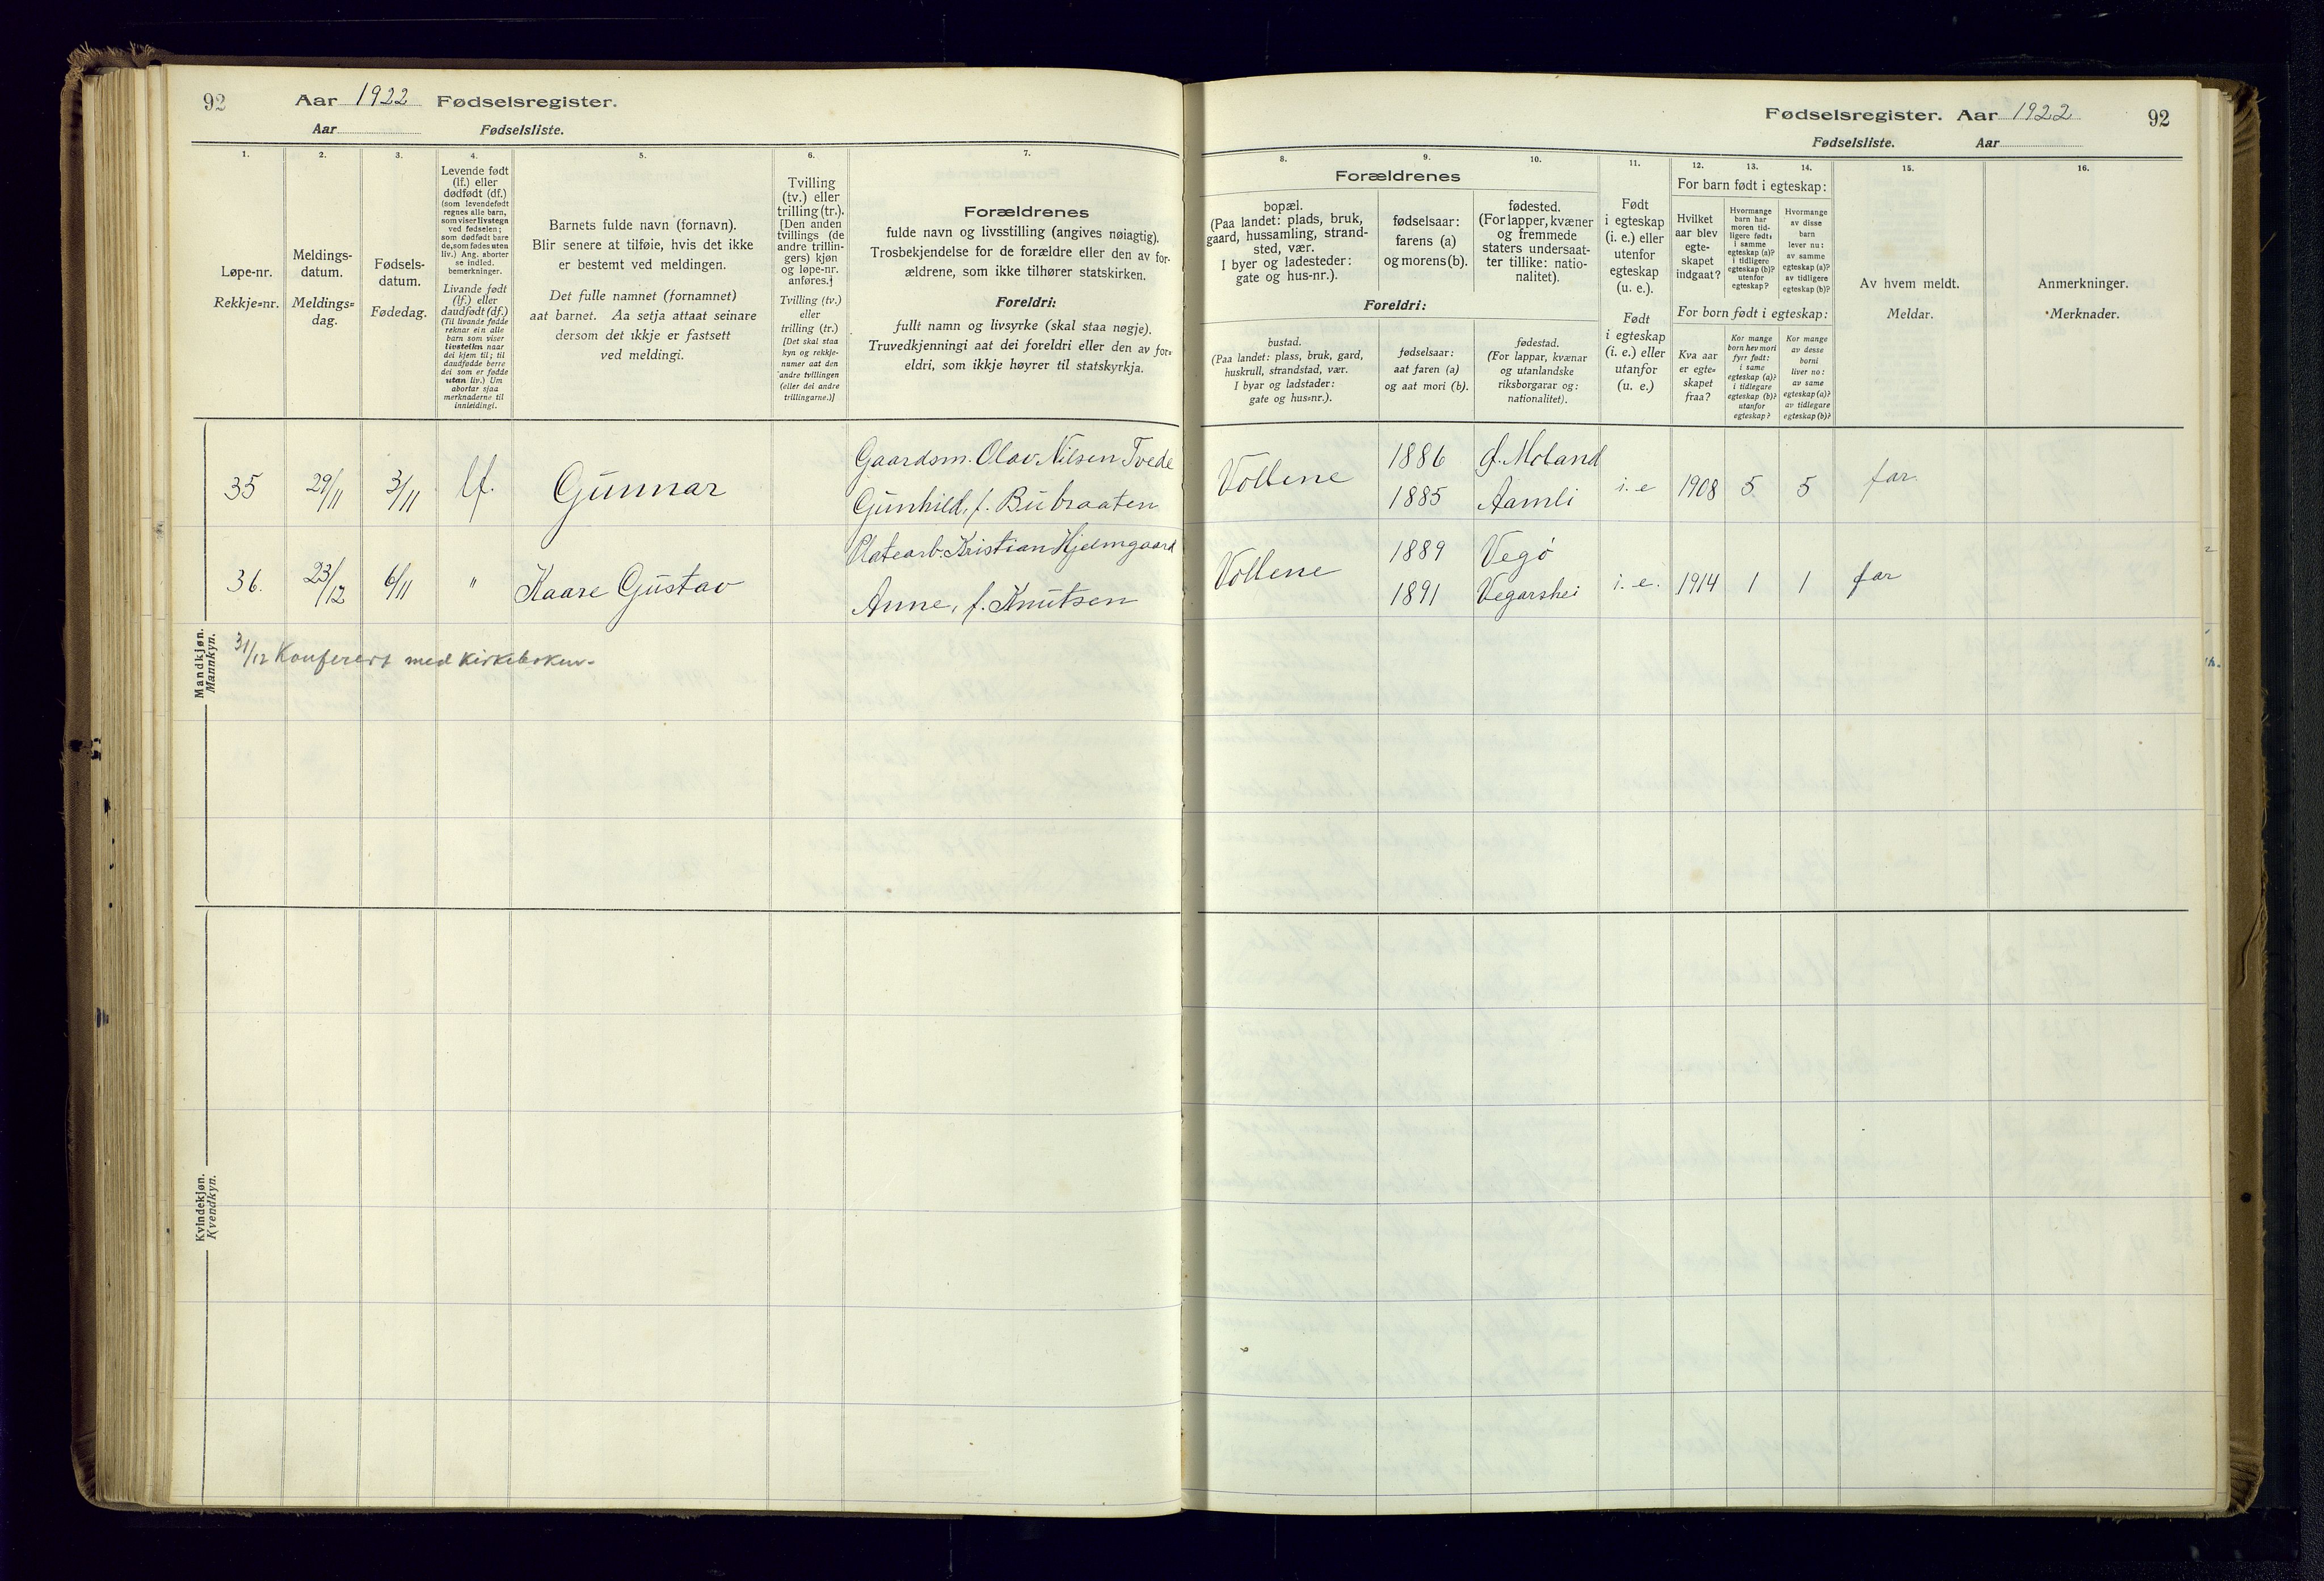 92 Aar 1922 Fødselsregister.
Aar Fødselsliste.
1. 2. 3. 4. 5. 6. 7.
Løpe-nr.
Rekkje=nr.
Meldings-
datum.
Meldings=
dag.
Fødsels-
datum.
Fødedag.
Levende født
(lf.) eller
dødfødt (df.)
(som levendefødt
regnes alle barn,
som viser livstegn
ved fødselen;
som dødfødt bare
de, som fødes uten
liv.) Ang. aborter
se indled.
bemerkninger.
Livande født
(lf.) eller
daudfødt (df.)
(Til livande fødde
reknar ein alle
barn som viser
livsteikn naar
dei kjem til; til
daudfødde berre
dei som er fødde
utan liv.) Um
abortar sjaa
merknaderne til
innleidingi.
Barnets fulde navn (fornavn).
Blir senere at tilføie, hvis det ikke
er bestemt ved meldingen.
Det fulle namnet (fornamnet)
aat barnet. Aa setja attaat seinare
dersom det ikkje er fastsett
ved meldingi.
Tvilling
(tv.) eller
trilling (tr.).
[Den anden
tvillings (de
andre trillin-
gers) kjøn
og løpe-nr.
anføres.]
Tvilling (tv.)
eller
trilling (tr.)
[Det skal staa
kyn og rekkje-
numer aat den
andre tvillingen
(eller dei andre
trillingarne.)]
Forældrenes
fulde navn og livsstilling (angives nøiagtig).
Trosbekjendelse for de forældre eller den av for-
ældrene, som ikke tilhører statskirken.
Foreldri:
fullt namn og livsyrke (skal staa nøgje).
Truvedkjenningi aat dei foreldri eller den av for=
eldri, som ikkje høyrer til statskyrkja.
35 29/11 3/11 lf. Gunnar
Gaardsm. Olav Nilsen Tvede
Gunhild, f. Bubraaten
36. 23/12 6/11 " Kaare Gustav
Platearb. Kristian Hjelmgaard
Anne, f. Knutsen
31/12 Konferert med kirkeboken.
Mandkjøn.
Mannkyn.
Kvindekjøn.
Kvendkyn.
Fødselsregister. Aar 1922 92
Fødselsliste. Aar
8. 9. 10. 11. 12. 13. 14. 15. 16.
Forældrenes
bopæl.
(Paa landet: plads, bruk,
gaard, hussamling, strand-
sted, vær.
I byer og ladesteder:
gate og hus-nr.).
fødselsaar:
farens (a)
og morens (b).
fødested.
(For lapper, kvæner
og fremmede
staters undersaat-
ter tillike: natio-
nalitet).
Foreldri:
bustad.
(Paa landet: plass, bruk, gard,
huskrull, strandstad, vær.
I byar og ladstader:
gate og hus=nr.).
fødselsaar:
aat faren (a)
og aat mori (b).
fødestad.
(For lappar, kvænar
og utanlandske
riksborgarar og:
nationalitet).
Født
i egteskap
(i. e.) eller
utenfor
egteskap
(u. e.).
Født
i egteskap
(i. e.) eller
utanfor
(u. e.)
For barn født i egteskap:
Hvilket
aar blev
egte-
skapet
indgaat?
Hvormange
barn har
moren tid-
ligere født:
i samme
egteskap (a)?
i tidligere
egteskap (b)?
utenfor
egteskap?
Hvormange
av disse
barn
lever nu:
av samme
egteskap (a)?
av tidligere
egteskap (b)?
For born født i egteskap:
Kva aar
er egte=
skapet
fraa?
Kor mange
born hev mori
fyrr født:
i same
egteskap (a)?
i tidlegare
egteskap (b)?
utanfor
egteskap?
Kor mange
av desse
borni
liver no:
av same
egteskap (a)?
av tidlegare
egteskap (b)?
Av hvem meldt.
Meldar.
Anmerkninger.
Merknader.
Vollene 1886 Ø. Moland
1885 Aamli i. e 1908 5 5 far.
Vollene 1889 Vegø
1891 Vegarshei i. e. 1914 1 1 far